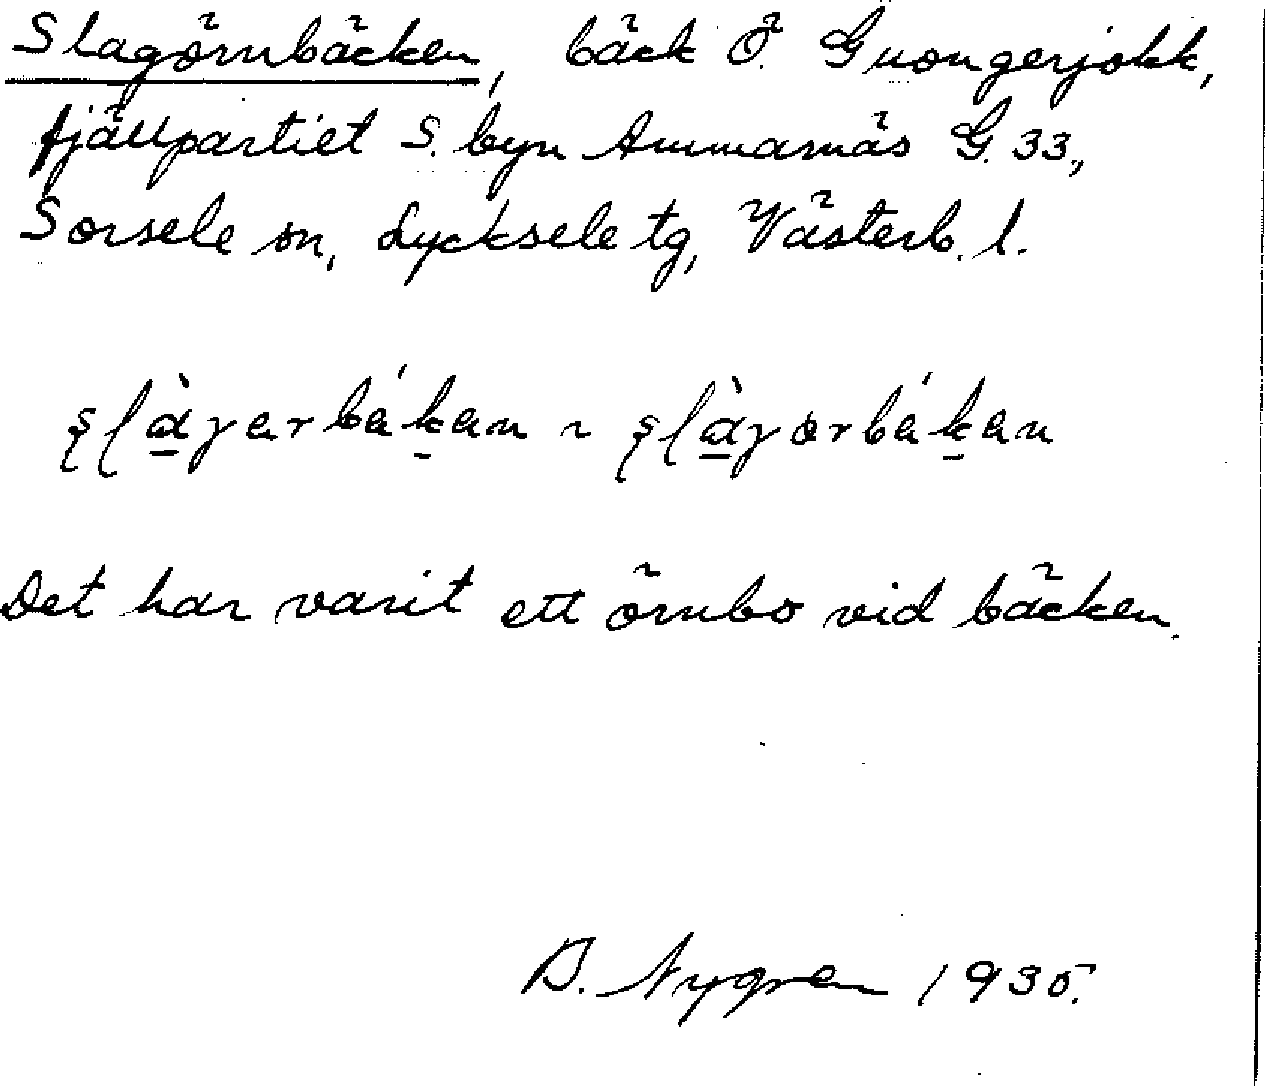 Slagörnbäcken, bäck Ö. Guongerjokk,
fjällpartiet S. byn Ammarnäs G. 33,
Sorsele sn, Lycksele tg, Västerb. l.
Det har varit ett örnbo vid bäcken.
B. Nygren 1935.